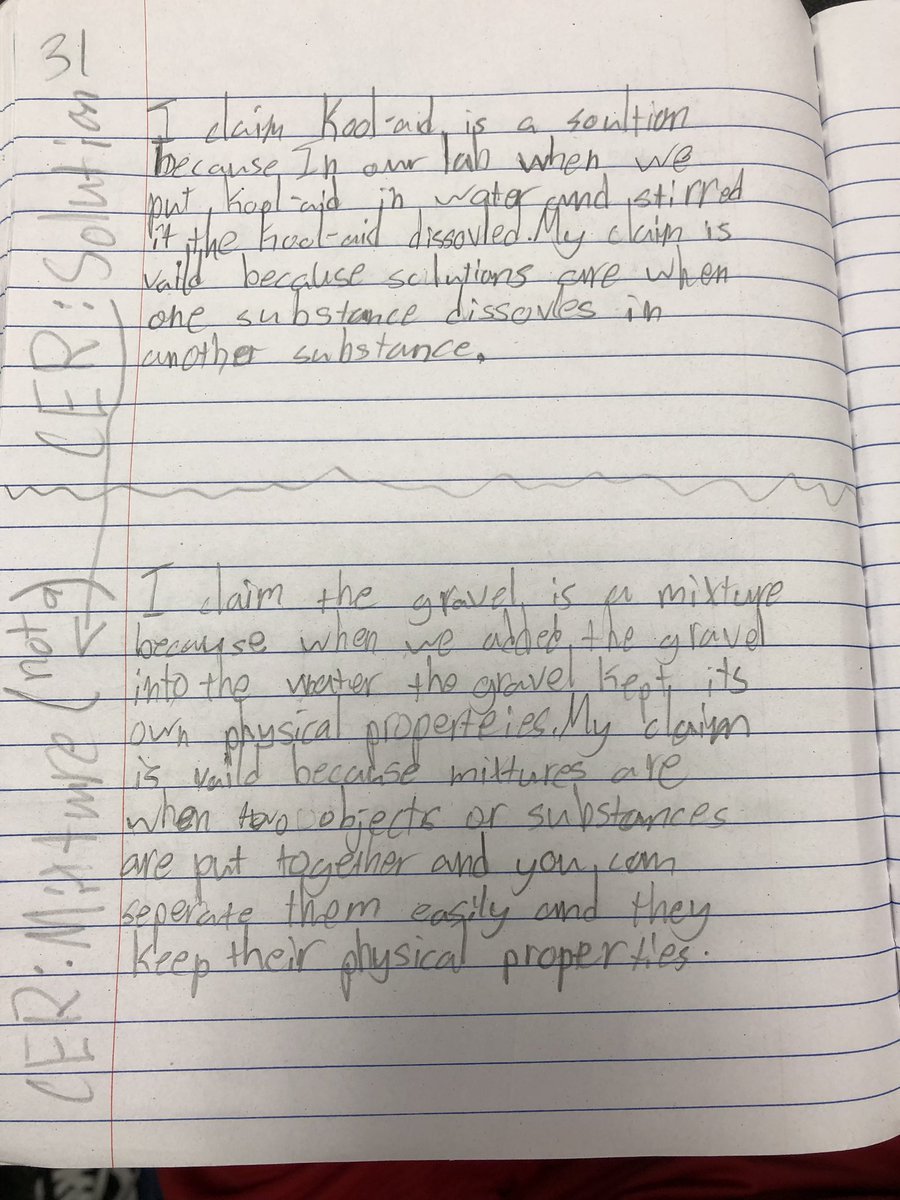 31
CER: Solution
I claim Kool-aid is a soultion
because In our lab when we
put kool-aid in water and stirred
it, the kool-aid dissovled. My claim is
vaild because solutions are when
one substance dissovles in
another substance.
CER: Mixture (not a)
I claim the gravel is a mixture
because when we added the gravel
into the water the gravel kept its
own physical properteies. My claim
is vaild because mixtures are
when two objects or substances
are put together and you can
seperate them easily and they
keep their physical properties.